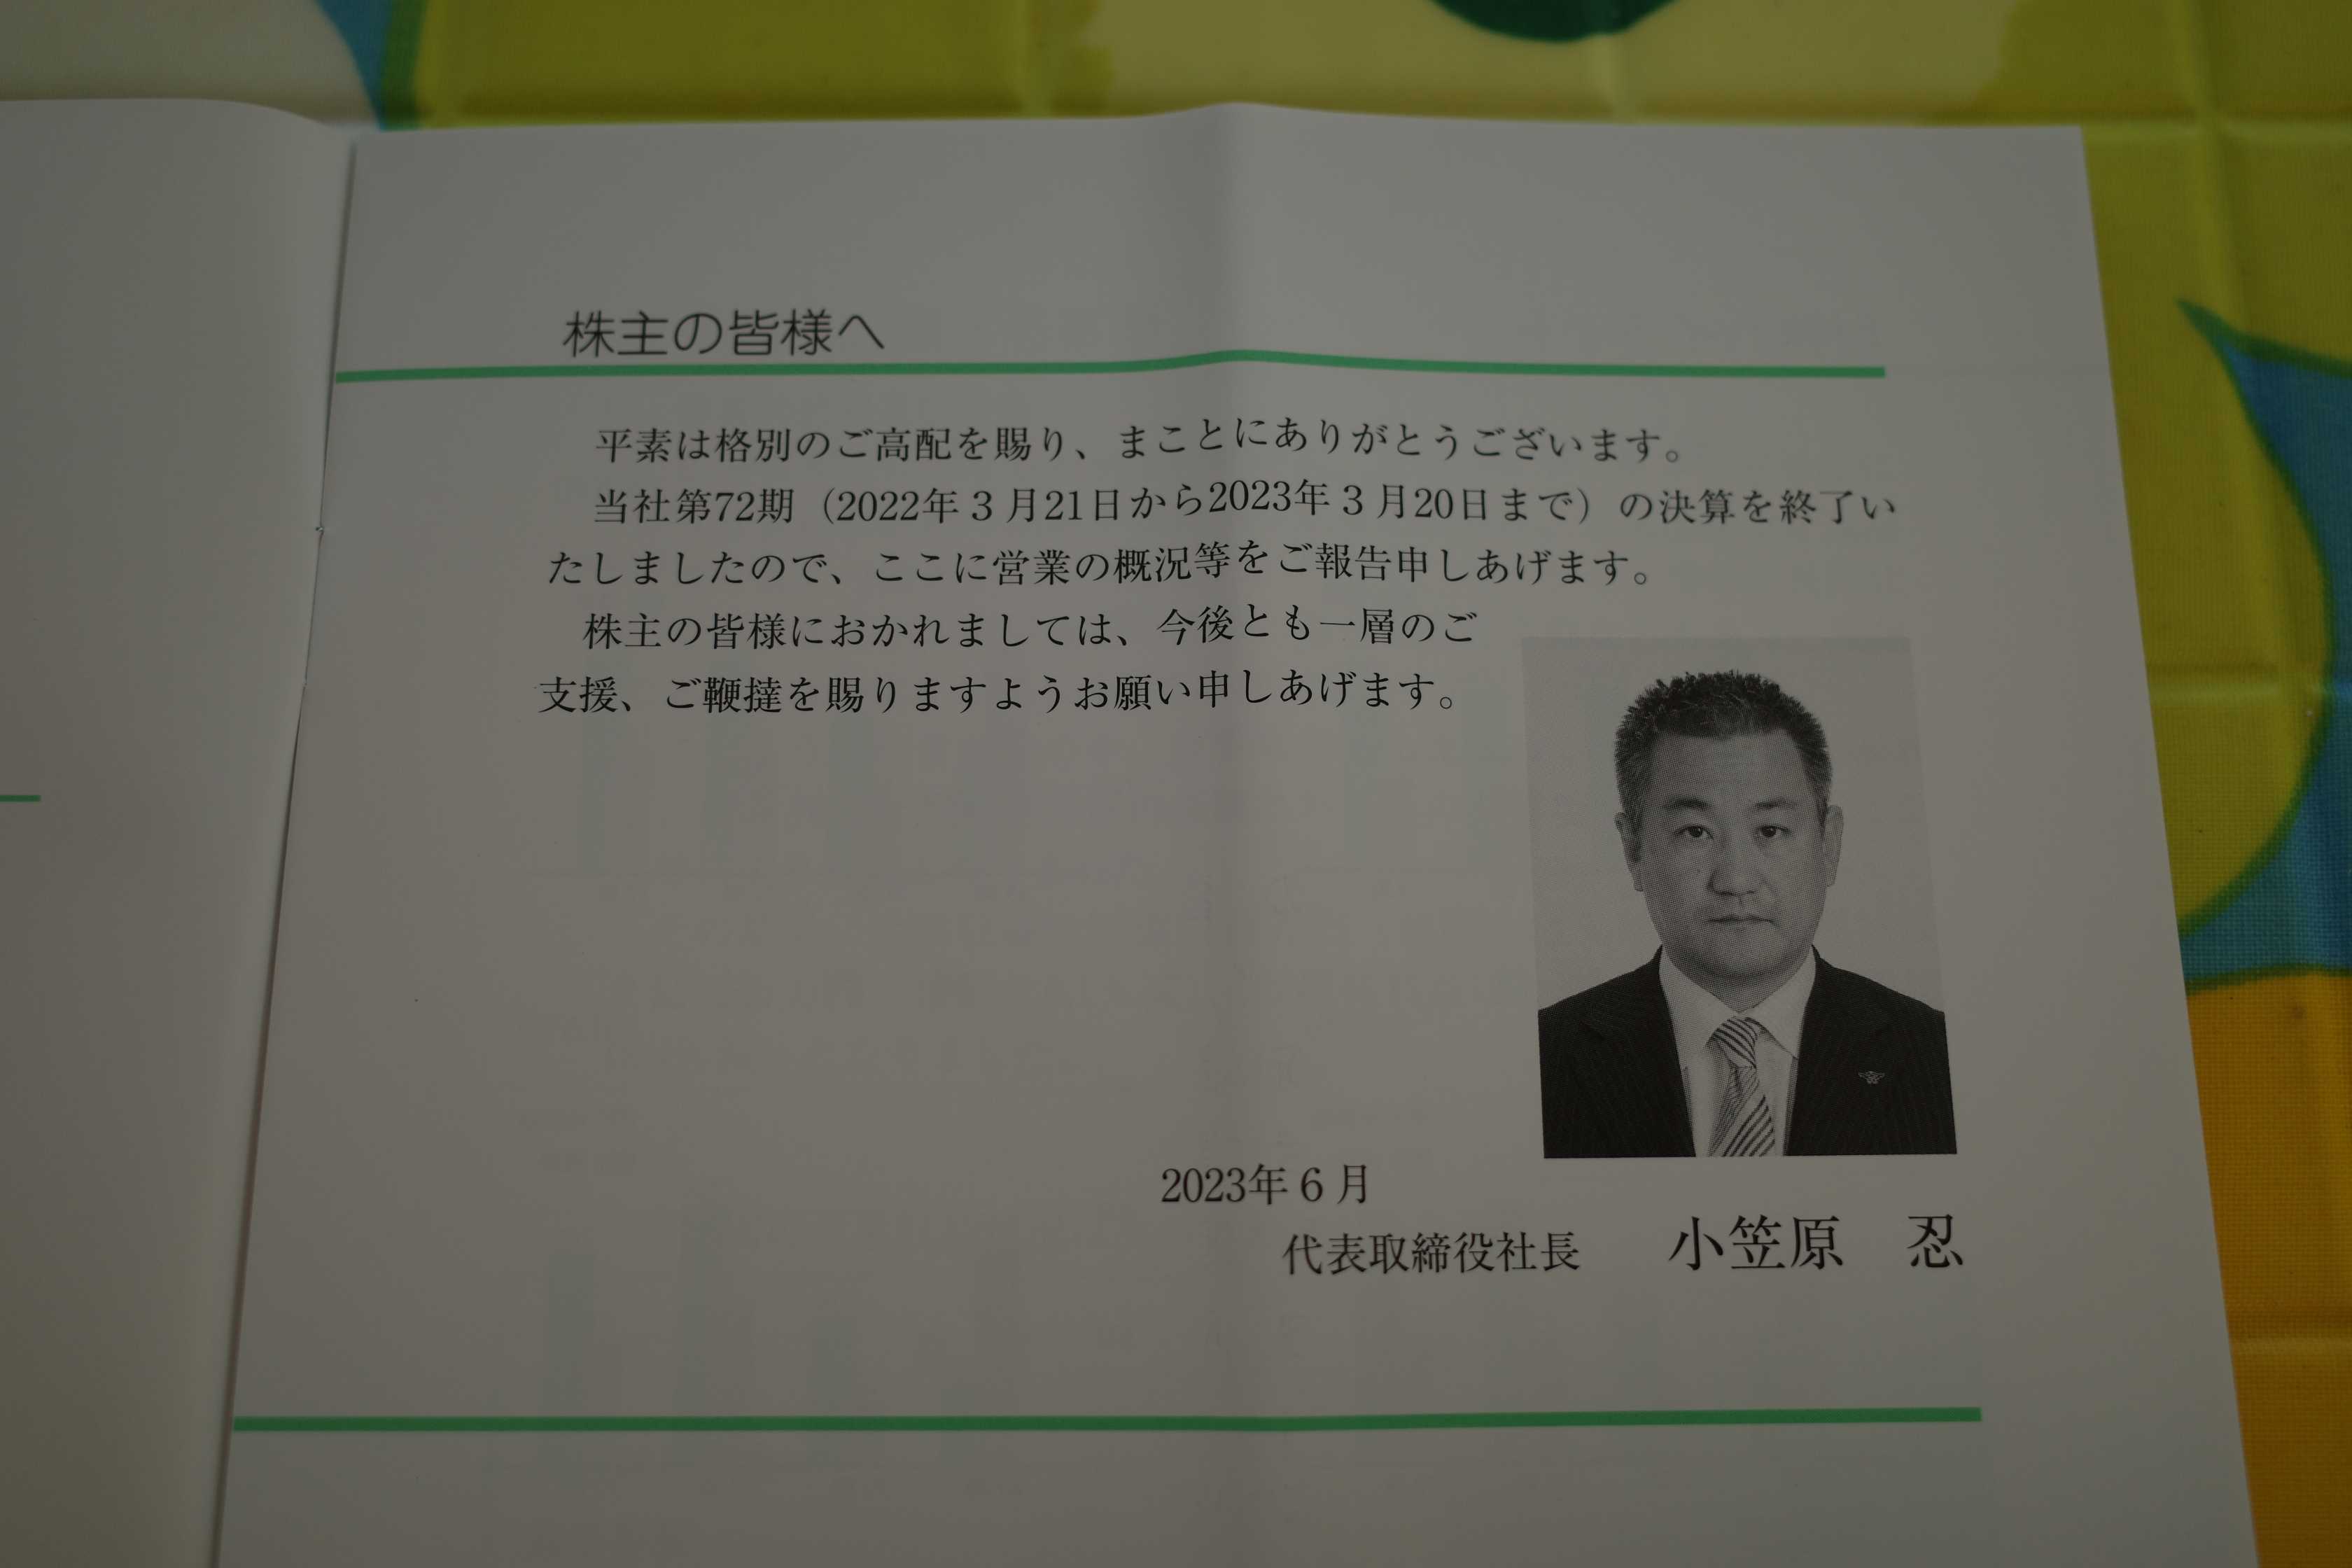 株主の皆様へ
平素は格別のご高配を賜り、まことにありがとうございます。
当社第72期（2022年３月21日から2023年３月20日まで）の決算を終了い
たしましたので、ここに営業の概況等をご報告申しあげます。
株主の皆様におかれましては、今後とも一層のご
支援、ご鞭撻を賜りますようお願い申しあげます。
2023年６月
代表取締役社長　小笠原　忍